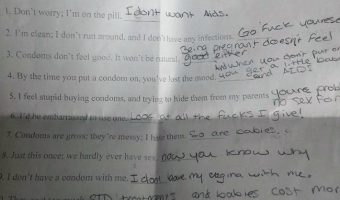 1. Don't worry; I'm on the pill. I dont want Aids.
2. I'm clean; I don't run around, and I don't have any infections. Go fuck
3. Condoms don't feel good. It won't be natural. Being pregnant doesn't feel good either
4. By the time you put a condom on, you've lost the mood. and when you don't put on you get a little and AIDS
5. I feel stupid buying condoms, and trying to hide them from my parents. you're no sex for
6. I'd be embarrassed to use one. Look at all the fucks I give!
7. Condoms are gross; they're messy; I hate them. So are babies..
8. Just this once; we hardly ever have sex. now you know why
9. I don't have a condom with me. I dont have my vagina with me.
STD treatments and babies cost more